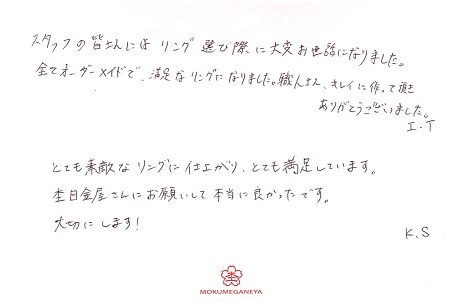 スタッフの皆さんには リング 選び際に大変お世話になりました。
全てオーダーメイドで、満足なリングになりました。職人さん、キレイに作って頂き
ありがとうございました。
I.T
とても素敵なリングに仕上がり、とても満足しています。
杢目金屋さんにお願いして本当に良かったです。
大切にします!
K.S
MOKUMEGANEYA